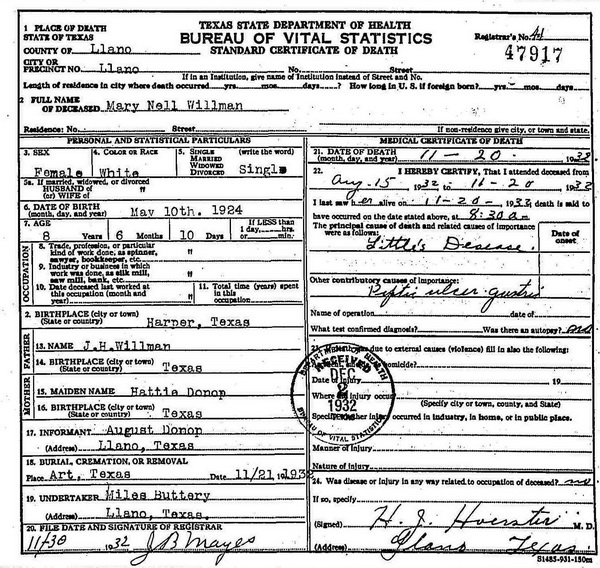 TEXAS STATE DEPARTMENT OF HEALTH
BUREAU OF VITAL STATISTICS
STANDARD CERTIFICATE OF DEATH
Registrar's No. 44
47917
1 PLACE OF DEATH
STATE OF TEXAS
COUNTY OF Llano
CITY OR
PRECINCT NO. Llano No. Street
If in an Institution, give name of Institution instead of Street and No.
Length of residence in city where death occurred yrs. mos. days? How long in U. S. if foreign born? yrs. mos. days
2 FULL NAME
OF DECEASED Mary Nell Willman
Residence: No. Street If non-residence give city, or town and state.
PERSONAL AND STATISTICAL PARTICULARS
3. SEX Female
4. COLOR OR RACE White
5. SINGLE
MARRIED
WIDOWED
DIVORCED
(write the word)
Single
5a. If married, widowed, or divorced
HUSBAND of
(or) WIFE of
6. DATE OF BIRTH
(month, day, and year) May 10th. 1924
7. AGE
8 Years 6 Months 10 Days
If LESS than
1 day, hrs.
or min.
OCCUPATION
8. Trade, profession, or particular
kind of work done, as spinner,
sawyer, bookkeeper, etc. "
9. Industry or business in which
work was done, as silk mill,
saw mill, bank, etc. "
10. Date deceased last worked at
this occupation (month and
year) "
11. Total time (years) spent
in this
occupation "
2. BIRTHPLACE (city or town)
(State or country) Harper, Texas
FATHER
13. NAME J.H.Willman
14. BIRTHPLACE (city or town)
(State or country) Texas
MOTHER
15. MAIDEN NAME Hattie Donop
16. BIRTHPLACE (city or town)
(State or country) Texas
17. INFORMANT August Donop
(Address) Llano, Texas
18. BURIAL, CREMATION, OR REMOVAL
Place Art, Texas Date 11/21 1932
19. UNDERTAKER Miles Buttery
(Address) Llano, Texas.
20. FILE DATE AND SIGNATURE OF REGISTRAR
11/30 1932 J B Mayes
MEDICAL CERTIFICATE OF DEATH
21. DATE OF DEATH
(month, day, and year) 11-20. 1932
22. I HEREBY CERTIFY, That I attended deceased from
Aug. 15 1932 to 11-20 1932
I last saw her alive on 11-20- 1932 death is said to
have occurred on the date stated above, at 8:30 a m.
The principal cause of death and related causes of importance
were as follows:
Date of
onset
Little's Disease.
Other contributory causes of importance:
Peptic ulcer gastric
Name of operation date of
What test confirmed diagnosis? Was there an autopsy? no
death was due to external causes (violence) fill in also the following:
homicide?
Date of injury 19
Where did injury occur
(Specify city or town, county, and State)
Specify whether injury occurred in industry, in home, or in public place.
DEPARTMENT OF HEALTH
RECEIVED
DEC
2
1932
BUREAU OF VITAL STATISTICS
Manner of injury
Nature of injury
24. Was disease or injury in any way related to occupation of deceased? no
If so, specify
(Signed) H. J. Hoerster M. D.
(Address) Llano Texas.
S1485-931-150m